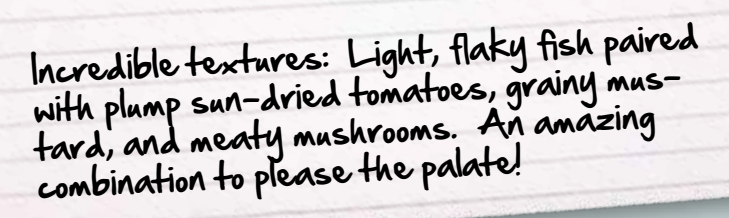 Incredible textures:  Light, flaky fish paired
with plump sun-dried tomatoes, grainy mus-
tard, and meaty mushrooms.  An amazing
combination to please the palate!